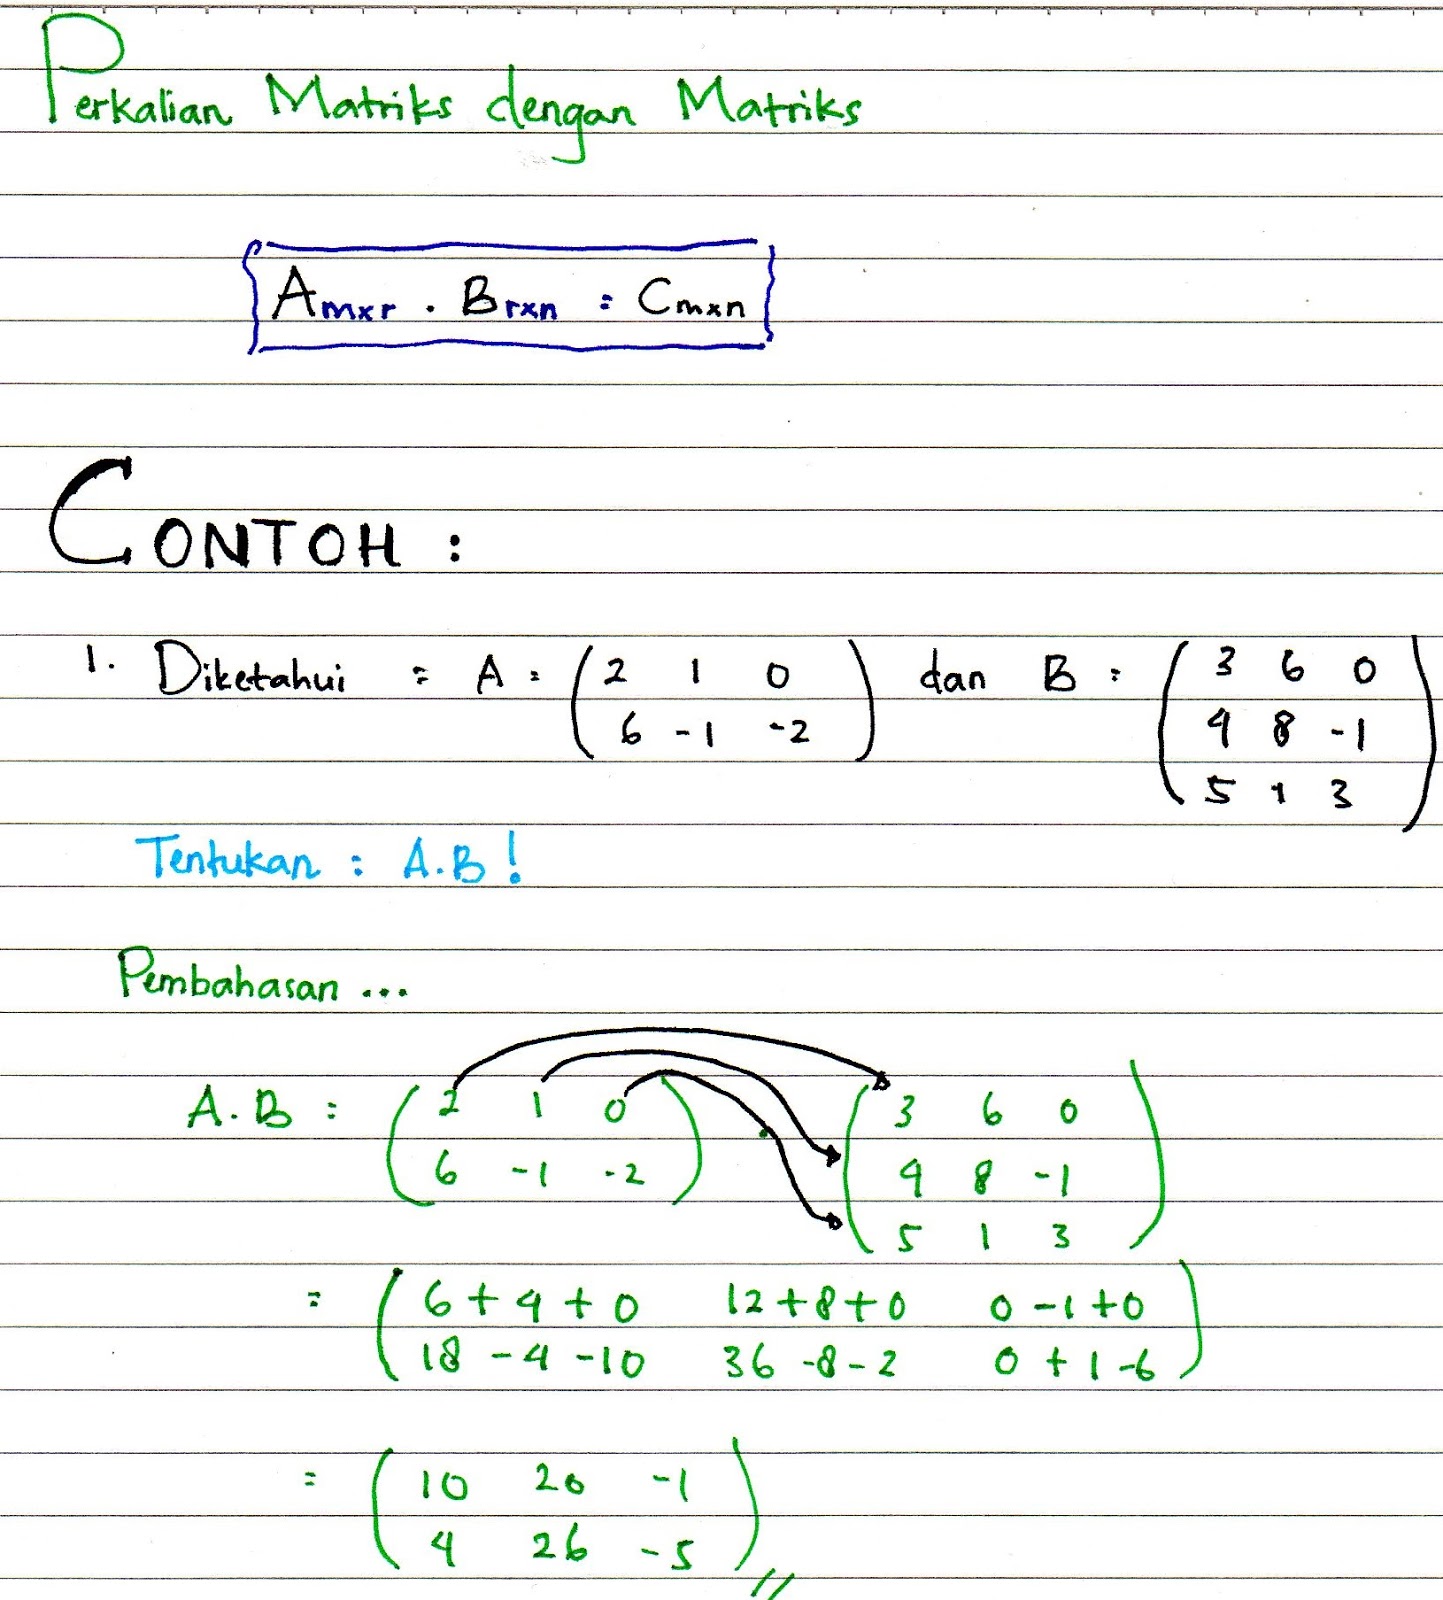 Perkalian Matriks dengan Matriks
Amxr . Brxn = Cmxn
CONTOH :
1. Diketahui = A = (2 1 0) dan B = (3 6 0)
(6 -1 -2) (4 8 -1)
(5 1 3)
Tentukan : A.B!
Pembahasan ...
A.B = (2 1 0) (3 6 0)
(6 -1 -2) (4 8 -1)
(5 1 3)
= (6+4+0 12+8+0 0-1+0)
(18-4-10 36-8-2 0+1-6)
= (10 20 -1)
(4 26 -5)//